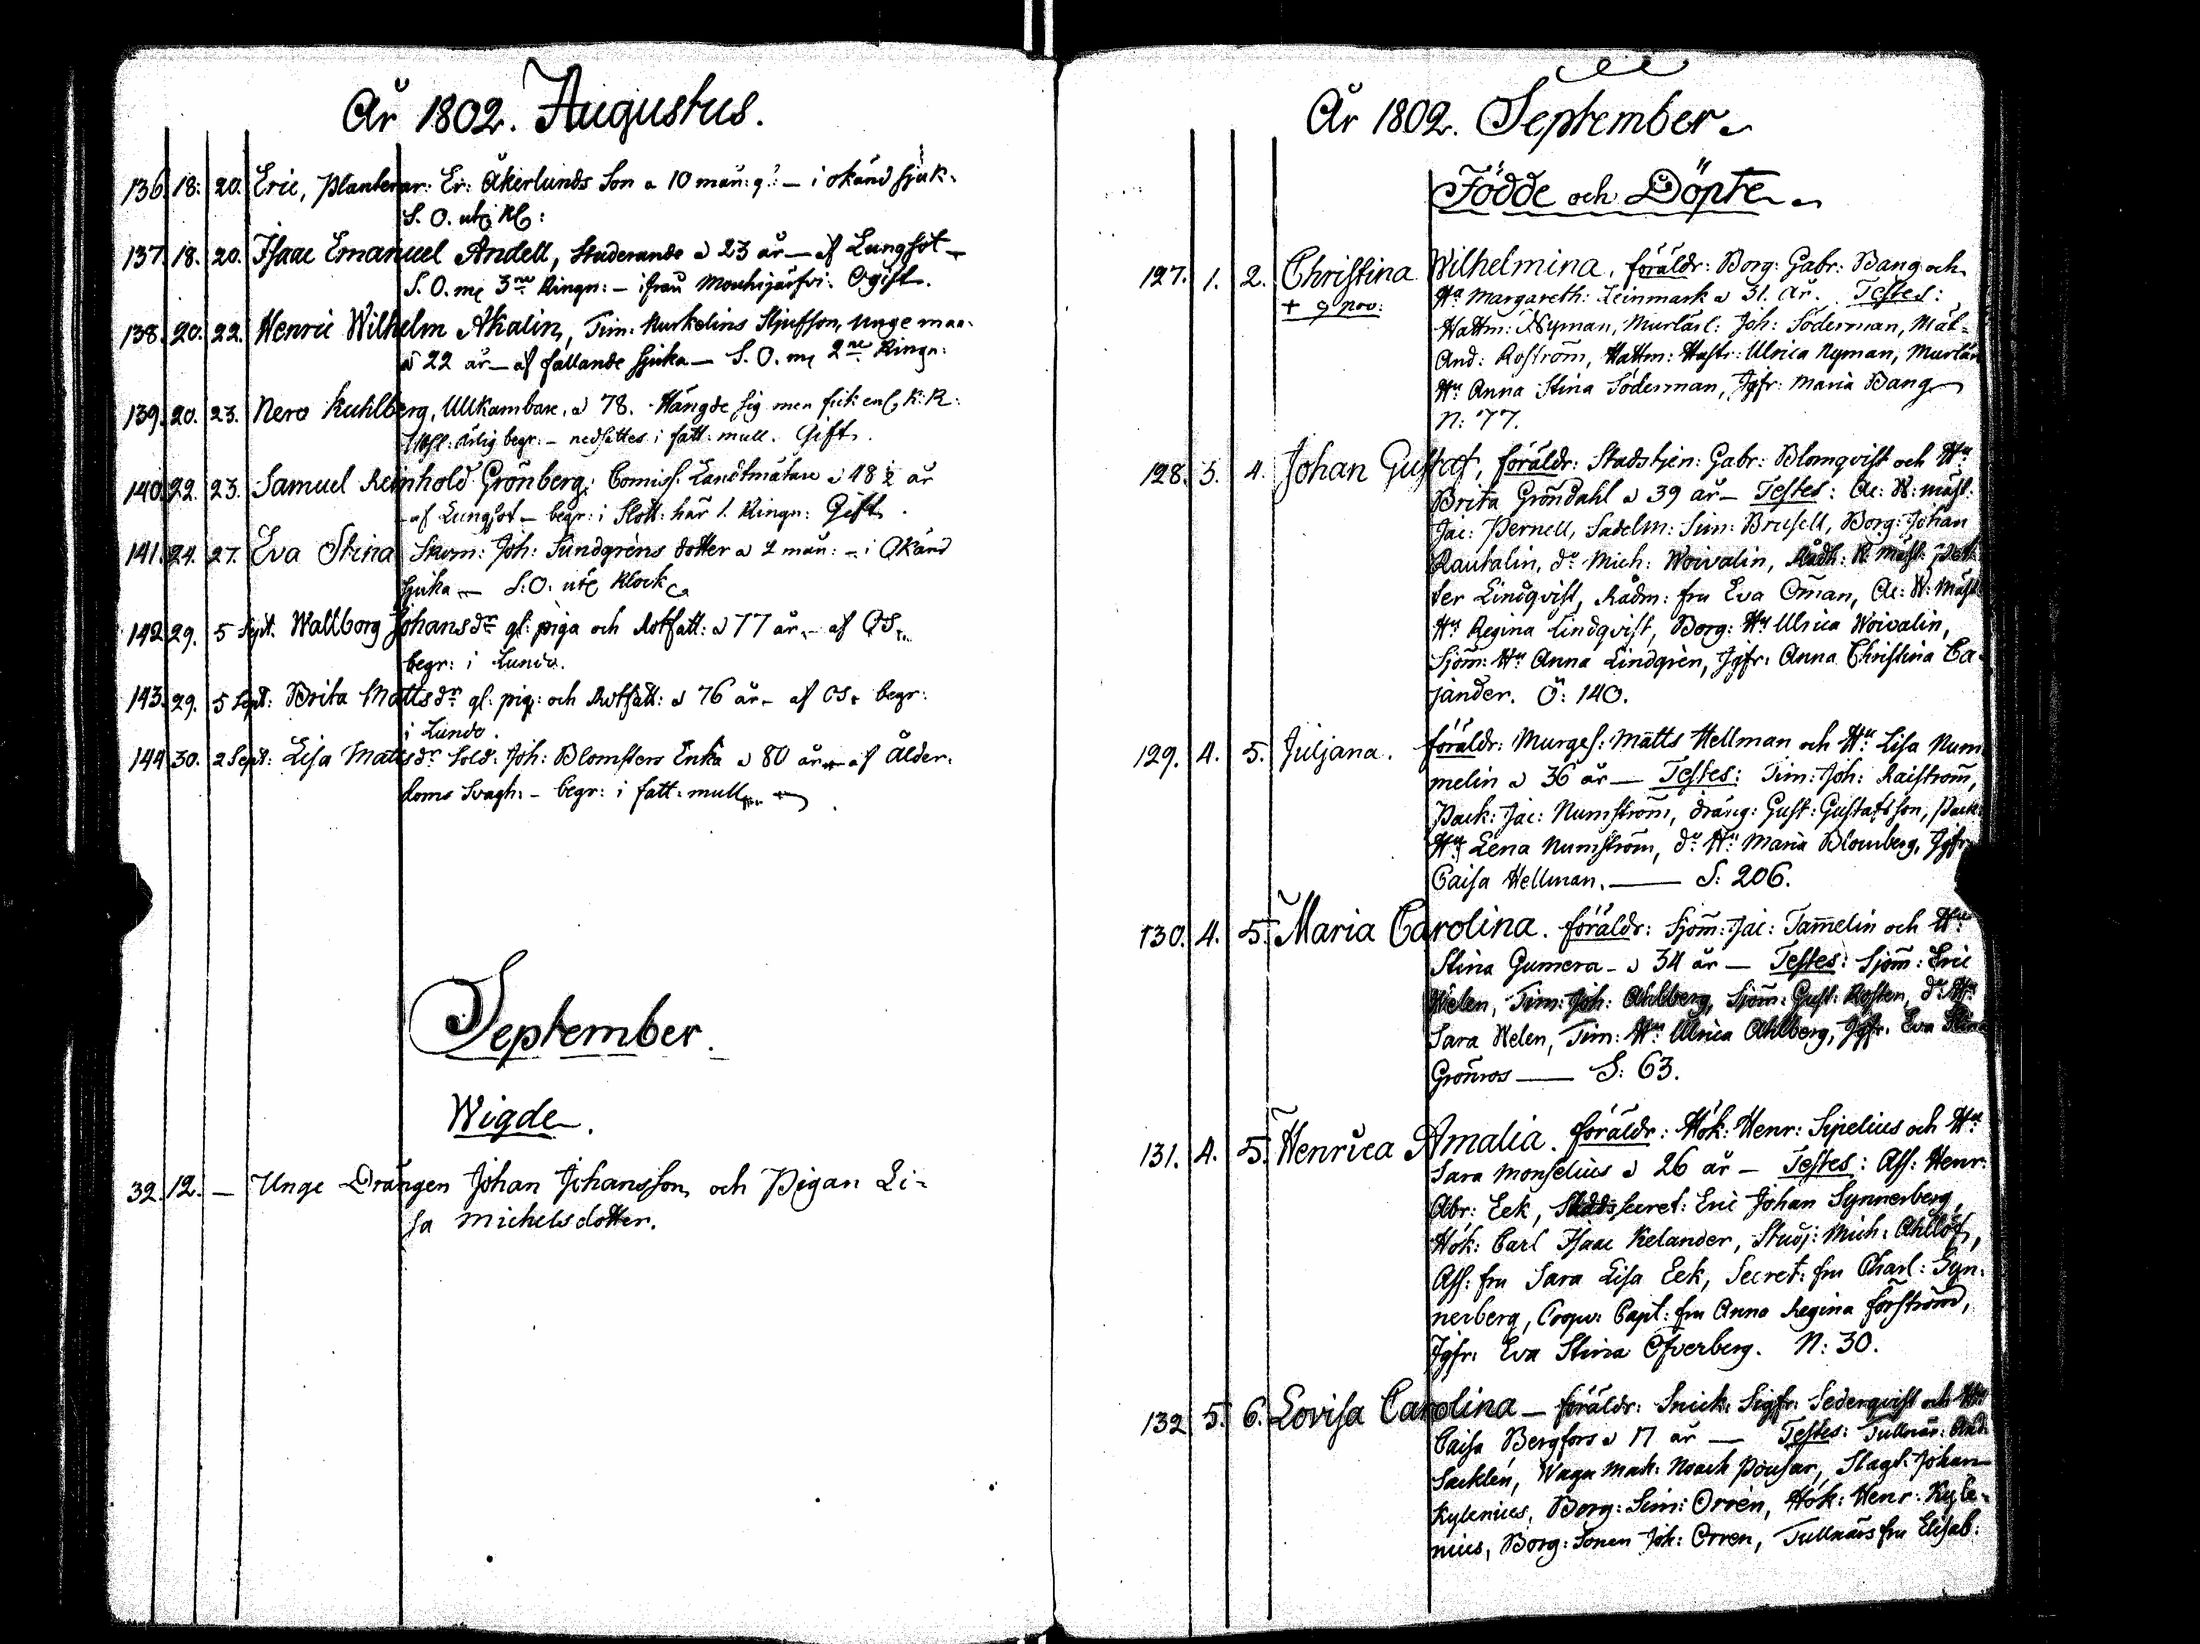 År 1802. Augustus.
136. 18. 20. Eric, Planterar: Er: Åkerlunds Son a 10 mån: g: — i okänd sjuk.
S. O. utj Kl:
137. 18. 20. Isaac Emanuel Andell, Studerande a 23 år — af Lungsot —
S. O. mz 3ne Ringn: — ifrån Mouhijärfvi. Ogift.
138. 20. 22. Henric Wilhelm Akalin, Tim: Kurkelins Stjufson, unge man.
a 22 år — af fallande sjuka — S. O. mz 2ne Ringn:
139. 20. 23. Nero Kuhlberg, Ullkambare, a 78. Hängde sig men fick K: R:
ärlig begr: — nedsattes i fatt: mull. Gift.
140. 22. 23. Samuel Reinhold Grönberg, Comiss. Landtmätare a 48 ½ år
— af Lungsot — begr: i Slott: här 1. Ringn: Gift.
141. 24. 27. Eva Stina Skom: Joh: Sundgréns dotter a 2 mån: — i Okänd
sjuka — S: O. utj Klock
142. 29. 5 Sept. Wallborg Johansdr gl: piga och Rotfatt: a 77 år — af OS.
begr: i Lundo.
143. 29. 5 Sept: Brita Mattsdr gl: pig: och Rotfatt: a 76 år — af OS. begr:
i Lundo.
144. 30. 2 Sept: Lisa Mattsdr Sold: Joh: Blomsters Enka a 80 år — af Ålder:
doms Svagh: — begr: i fatt: mull
September.
Wigde.
32. 12. — Unge Drängen Johan Johansson och Pigan Li-
sa Michelsdotter.
År 1802. September.
Födde och Döpte.
127. 1. 2. Christina Wilhelmina. föräldr: Borg: Gabr: Bang och
+ 9 nov: Hu Margareth: Leinmark a 31. år. Testes:
Hattm: Nyman, Murlärl: Joh: Söderman, Mål-
And: Roström, Hattm: Hustr: Ulrica Nyman, Murlär
Hu Anna Stina Söderman, Jgfr: Maria Bang
N: 77.
128. 3. 4. Johan Gustaf, föräldr: Stadstjen: Gabr: Blomqvist och Hu
Brita Gröndahl a 39 år — Testes: Ac: W: mäst:
Jac: Pernell, Sadelm: Sim: Brusell, Borg: Johan
Rautalin, do Mich: Woivalin, Rådh: W. mäst: Pet-
ter Lindqvist, Rådm: fru Eva Öman, Ac: W: Mäst
Hu Regina Lindqvist, Borg: Hu Ulrica Woivalin,
Sjöm: Hu Anna Lindgrén, Jgfr: Anna Christina Ca-
jander. Ö: 140.
129. 4. 5. Juljana. föräldr: Murges: Matts Hellman och Hu Lisa Num
melin a 36 år — Testes: Tim: Joh: Raiström,
Pack: Jac: Numström, dräng: Gust: Gustafsson, Pack:
Hu Lena Numström, do Hu Maria Blomberg, Jgfr:
Caisa Hellman. — S: 206.
130. 4. 5. Maria Carolina. föräldr: Sjöm: Jac: Tam̄elin och Hu
Stina Gumera — a 34 år — Testes: Sjöm: Eric
Helen, Tim: Joh: Ahlberg, Sjöm: Gust: Rosten, do Hu
Sara Helen, Tim: Hu Ulrica Ahlberg, Jgfr: Eva Stina
Grönros — S: 63.
131. 4. 5. Henrica Amalia. föräldr: Hök: Henr: Sipelius och Hu
Sara Monselius a 26 år — Testes: Ass: Henr:
Abr: Eek, Stadssecret: Eric Johan Synnerberg,
Hök: Carl Isaac Kelander, Studj: Mich: Ahllöf,
Ass: fru Sara Lisa Eek, Secret: fru Charl: Syn-
nerberg, Coopv: Capt: fru Anna Regina Forström,
Jgfr: Eva Stina Öfverberg. N: 30.
132. 5. 6. Lovisa Carolina — föräldr: Snick: Sigfr: Sederqvist och Hu
Caisa Bergfors a 17 år — Testes: Tullnär: And:
Sacklén, Wagn mak: Noach Pousar, Slagt: Johan
Kylenius, Borg: Sim: Orrén, Hök: Henr: Kyle-
nius, Borg: Sonen Joh: Orren, Tullnärs fru Elisab: